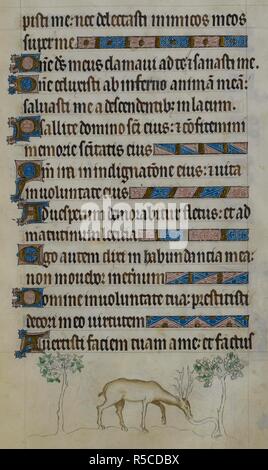 pisti me: nec delectasti inimicos meos
super me.
Dñe ds meus clamavi ad te & sanasti me.
Dñe eduxisti ab inferno animā meā:
salvasti me a descendentibȝ in lacum.
Psallite domino sc̄i eius: & confitemini
memorie sc̄itatis eius
Qm̄ ira in indignatōne eius: & vita
in voluntate eius
Ad vesperum demorabitur fletus: et ad
matutinū leticia
Ego autem dixi in habundancia mea:
non movebor in eternum
Domine in voluntate tua: prestitisti
decori meo virtutem
Avertisti faciem tuam a me: et factus
alamy
Image ID: R5CDBX
www.alamy.com